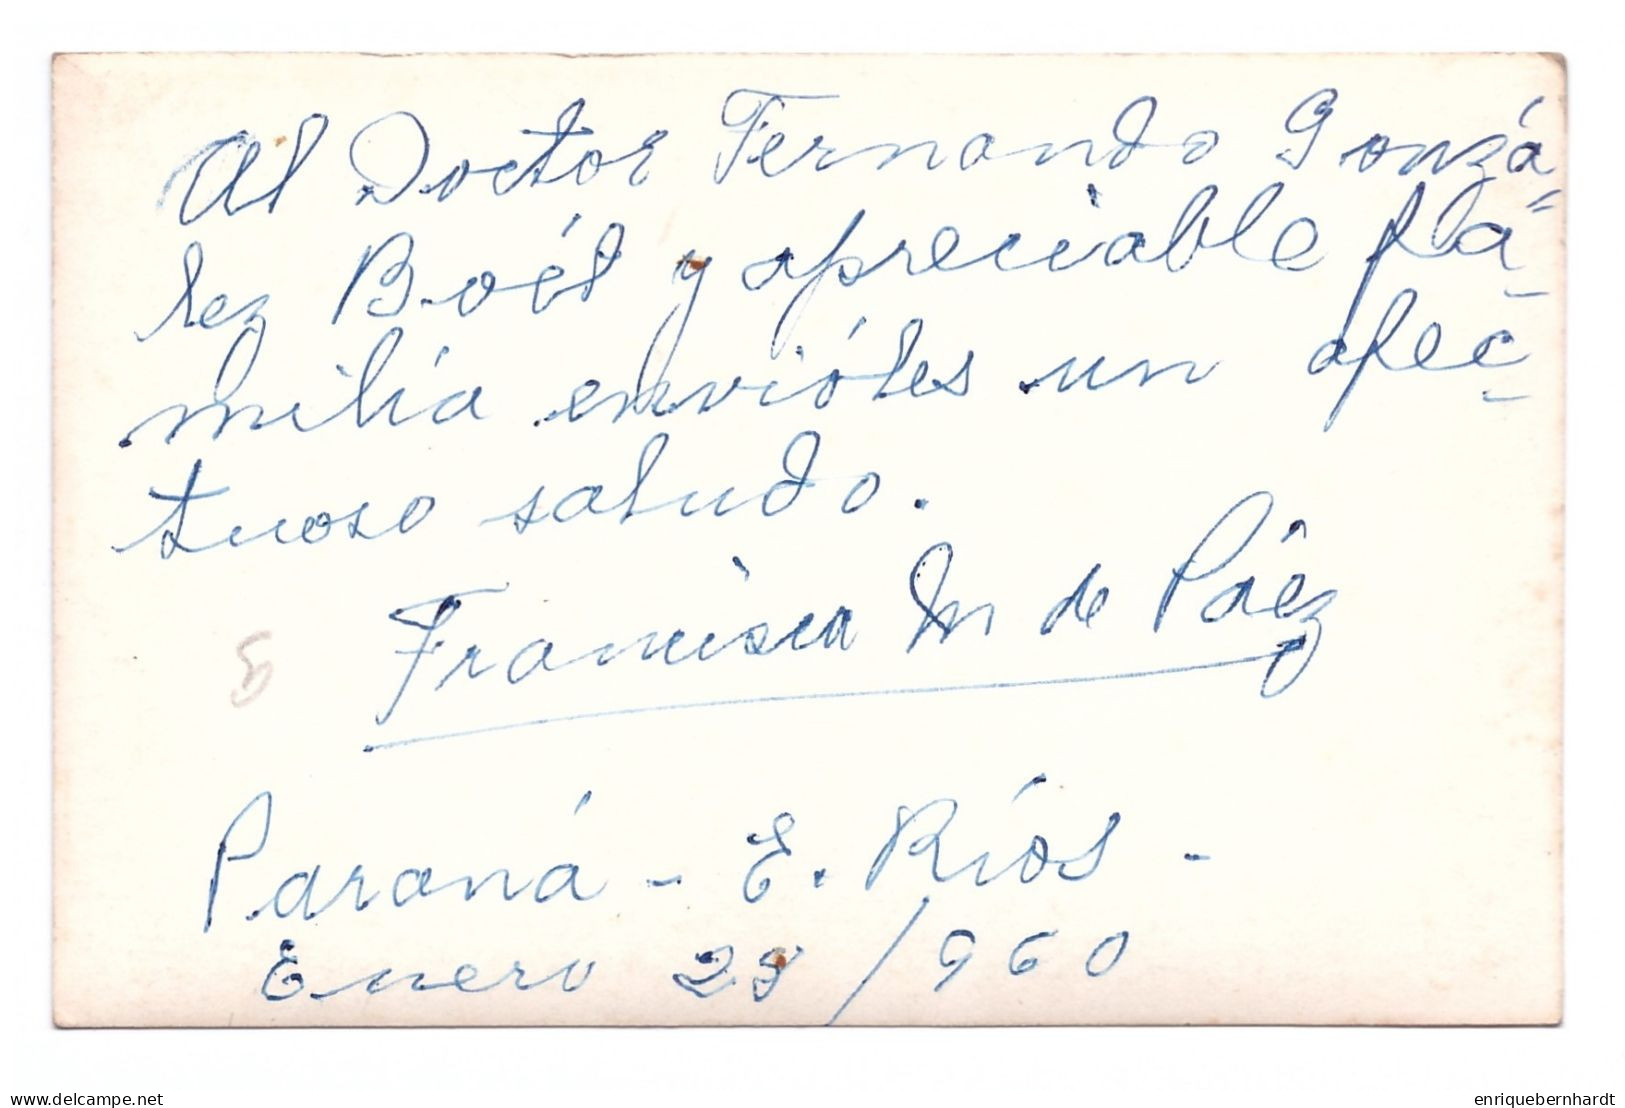 Al Doctor Fernando Gonzá=
lez Boét y apreciable fa-
milia envióles un afec-
tuoso saludo.
Francisca M de Páez
Paraná - E. Ríos -
Enero 23/960
delcampe.net
enriquebernhardt